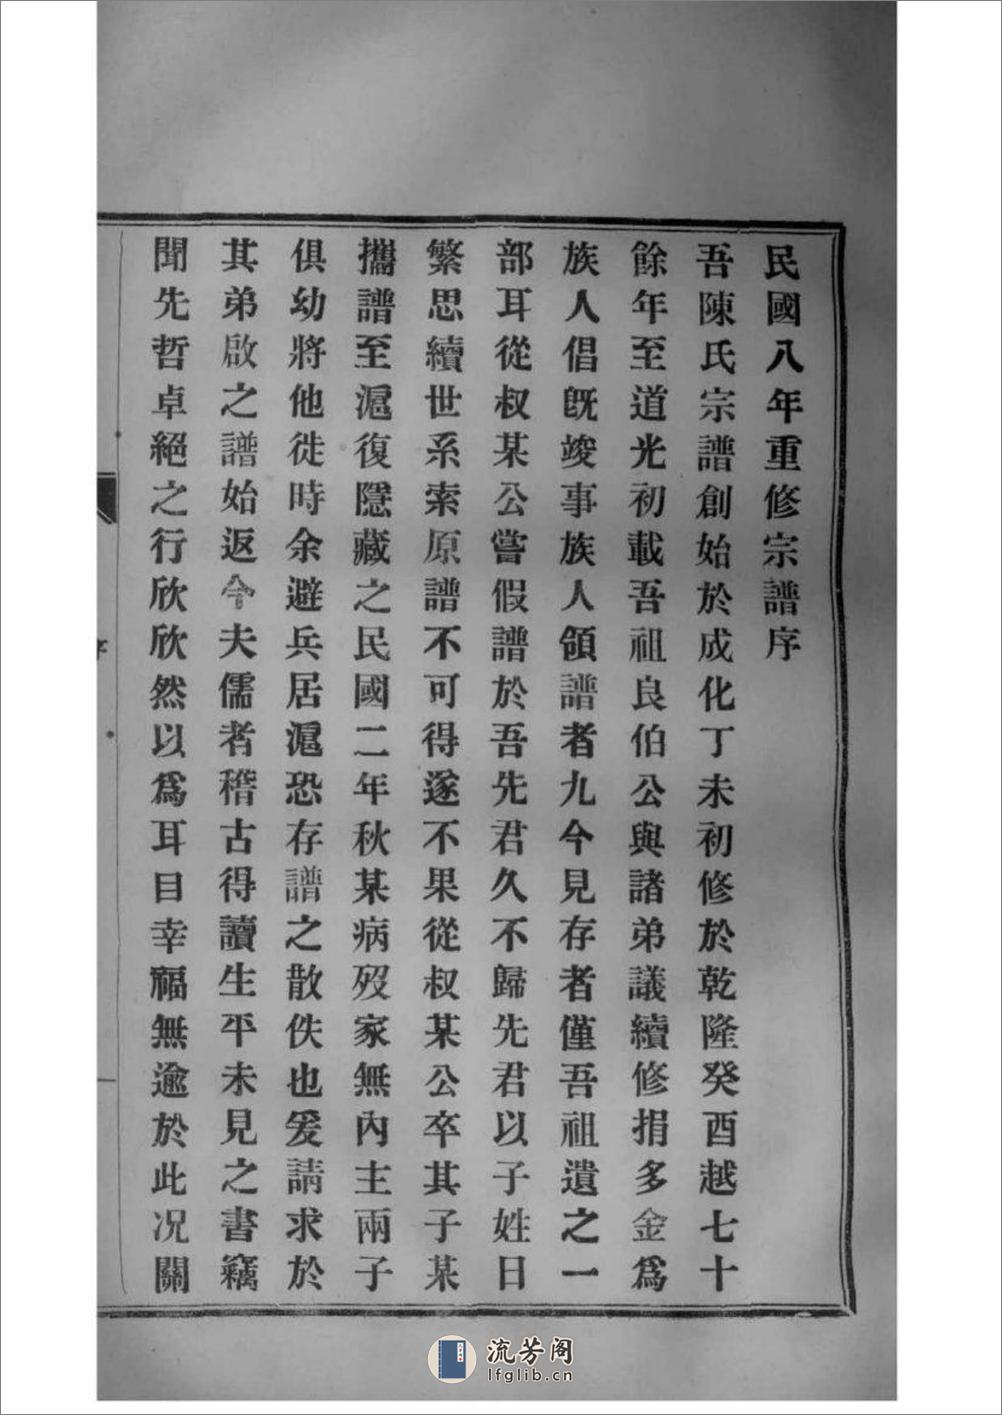 民國八年重修宗譜序
吾陳氏宗譜創始於成化丁未初修於乾隆癸酉越七十
餘年至道光初載吾祖良伯公與諸弟議續修捐多金爲
族人倡旣竣事族人領譜者九今見存者僅吾祖遺之一
部耳從叔某公嘗假譜於吾先君久不歸先君以子姓日
繁思續世系索原譜不可得遂不果從叔某公卒其子某
攜譜至滬復隱藏之民國二年秋某病歿家無內主兩子
俱幼將他徙時余避兵居滬恐存譜之散佚也爰請求於
其弟啟之譜始返今夫儒者稽古得讀生平未見之書竊
聞先哲卓絕之行欣欣然以爲耳目幸福無逾於此况關
序
一
流芳阁
lfglib.cn